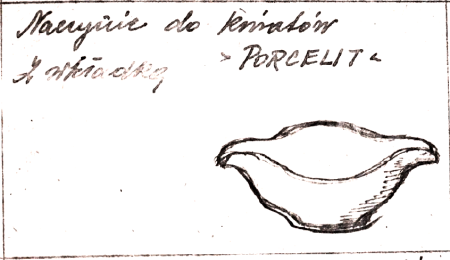 Naczynie do kwiatów
Z wkładką >PORCELIT<